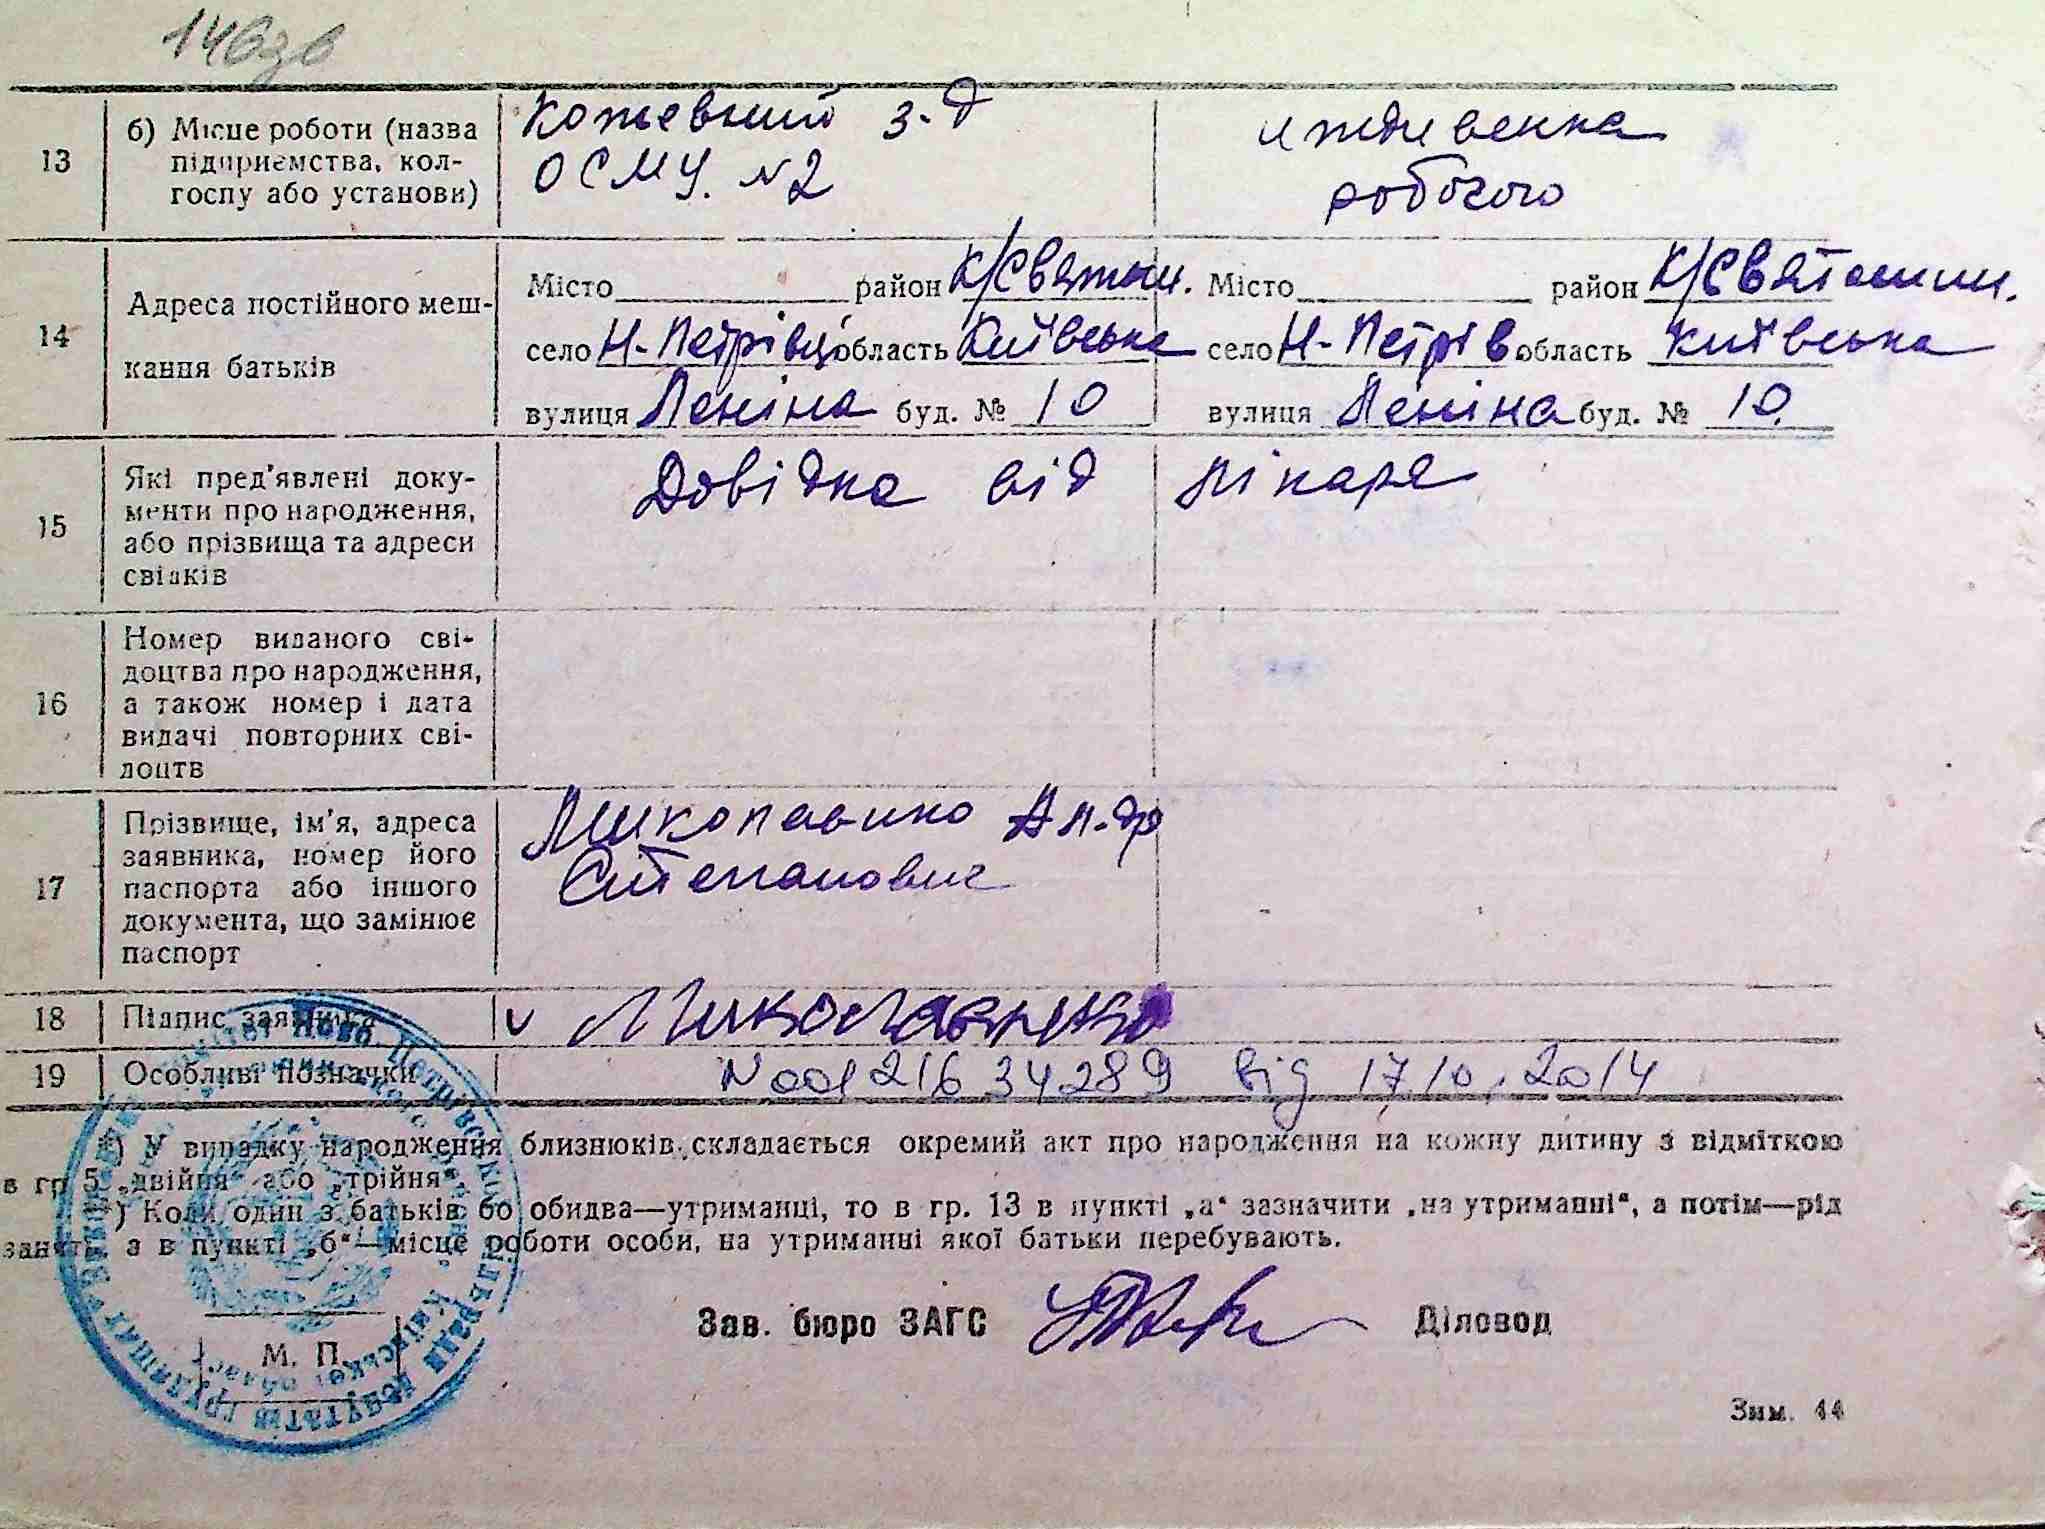 14б зв
13
б) Місце роботи (назва
підприємства, кол-
госпу або установи)
Кожевний з-д
ОСМУ. №2
иждивенка
робочого
14
Адреса постійного меш-
кання батьків
Місто район К/Святош.
село Н-Петрівці область Київська
вулиця Леніна буд. № 10
Місто район К/Святошин.
село Н-Петрів область Київська
вулиця Леніна буд. № 10.
15
Які пред'явлені доку-
менти про народження,
або прізвища та адреси
свідків
Довідка від лікаря
16
Номер виданого сві-
доцтва про народження,
а також номер і дата
видачі повторних сві-
доцтв
17
Прізвище, ім'я, адреса
заявника, номер його
паспорта або іншого
документа, що замінює
паспорт
Миколаенко Ал-др
Степанович
18
Підпис заявника
v Миколаенко
19
Особливі позначки
N 00121634289 від 17.10.2014
*) У випадку народження близнюків складається окремий акт про народження на кожну дитину з відміткою
в гр 5 „двійня“ або „трійня“.
**) Коли один з батьків бо обидва—утриманці, то в гр. 13 в пункті „а“ зазначити „на утриманні“, а потім—рід
занять, а в пункті „б“—місце роботи особи, на утриманні якої батьки перебувають.
Зав. бюро ЗАГС
Діловод
М. П.
Зам. 44